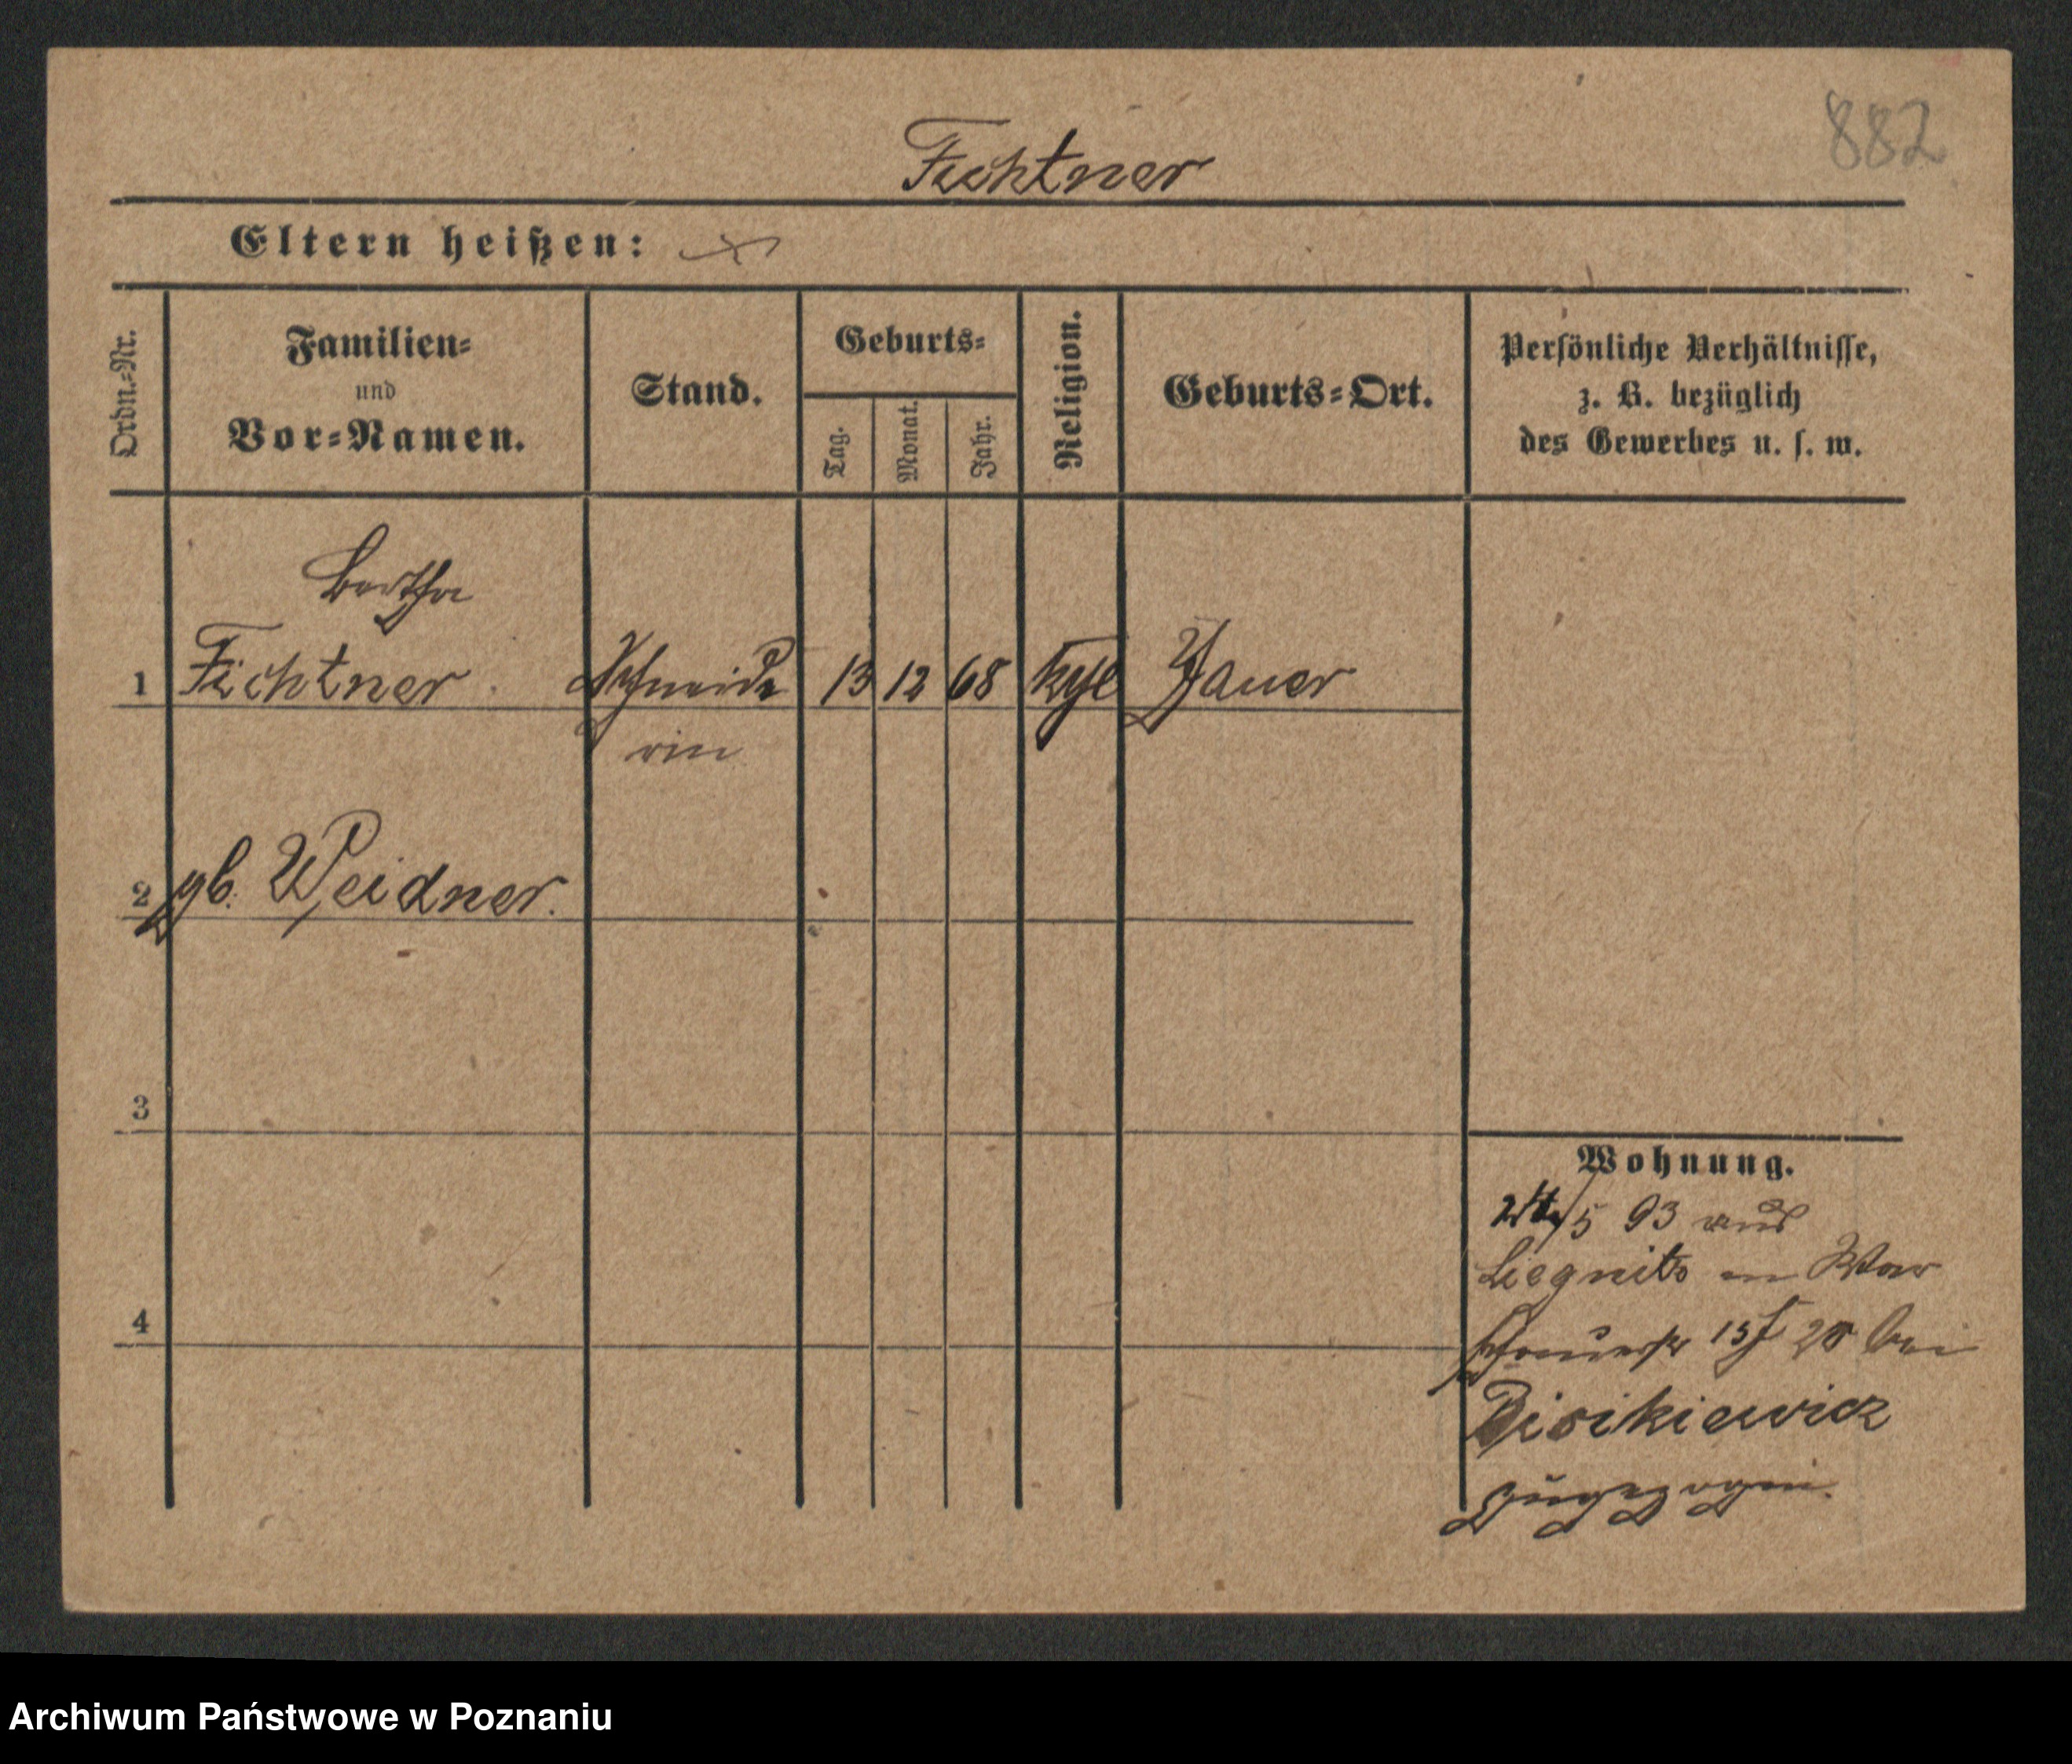 882
Fichtner
Eltern heißen:
Ordn.-Nr.
Familien-
und
Vor-Namen.
Stand.
Geburts-
Tag.
Monat.
Jahr.
Religion.
Geburts-Ort.
Persönliche Verhältnisse,
z. B. bezüglich
des Gewerbes u. s. w.
Bertha
1 Fichtner Schneide 13 12 68 Jauer
rin
2 gb. Weidner.
3
4
Wohnung.
24/5 93 aus
Liegnitz
bei
zugezogen.
Archiwum Państwowe w Poznaniu